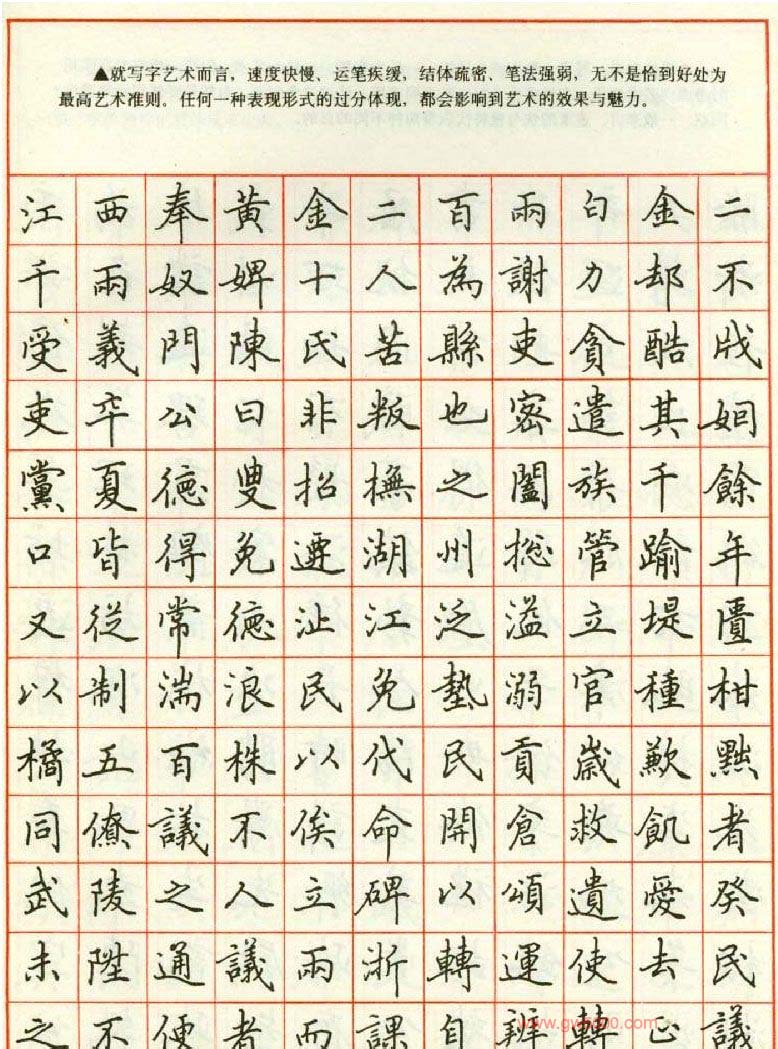 ▲就写字艺术而言，速度快慢、运笔疾缓，结体疏密、笔法强弱，无不是恰到好处为
最高艺术准则。任何一种表现形式的过分体现，都会影响到艺术的效果与魅力。
江西奉黃金二百兩白金二
千兩奴婢十人為謝力却不
受義門陳氏苦縣吏貪酷戕
吏卒公曰非叛也密遣其姻
黨夏德叟招撫之闔族千餘
口皆得免遷湖州摠管踰年
又從常德沚江泛溢立堤匽
以制湍浪民免墊溺官種柑
橘五百株以代民貢歲歉黙
同僚議不俟命開倉救飢者
武陵之人立碑以頌遺愛癸
未陞通議兩浙轉運使去民
之不便者而課自辨轉正議